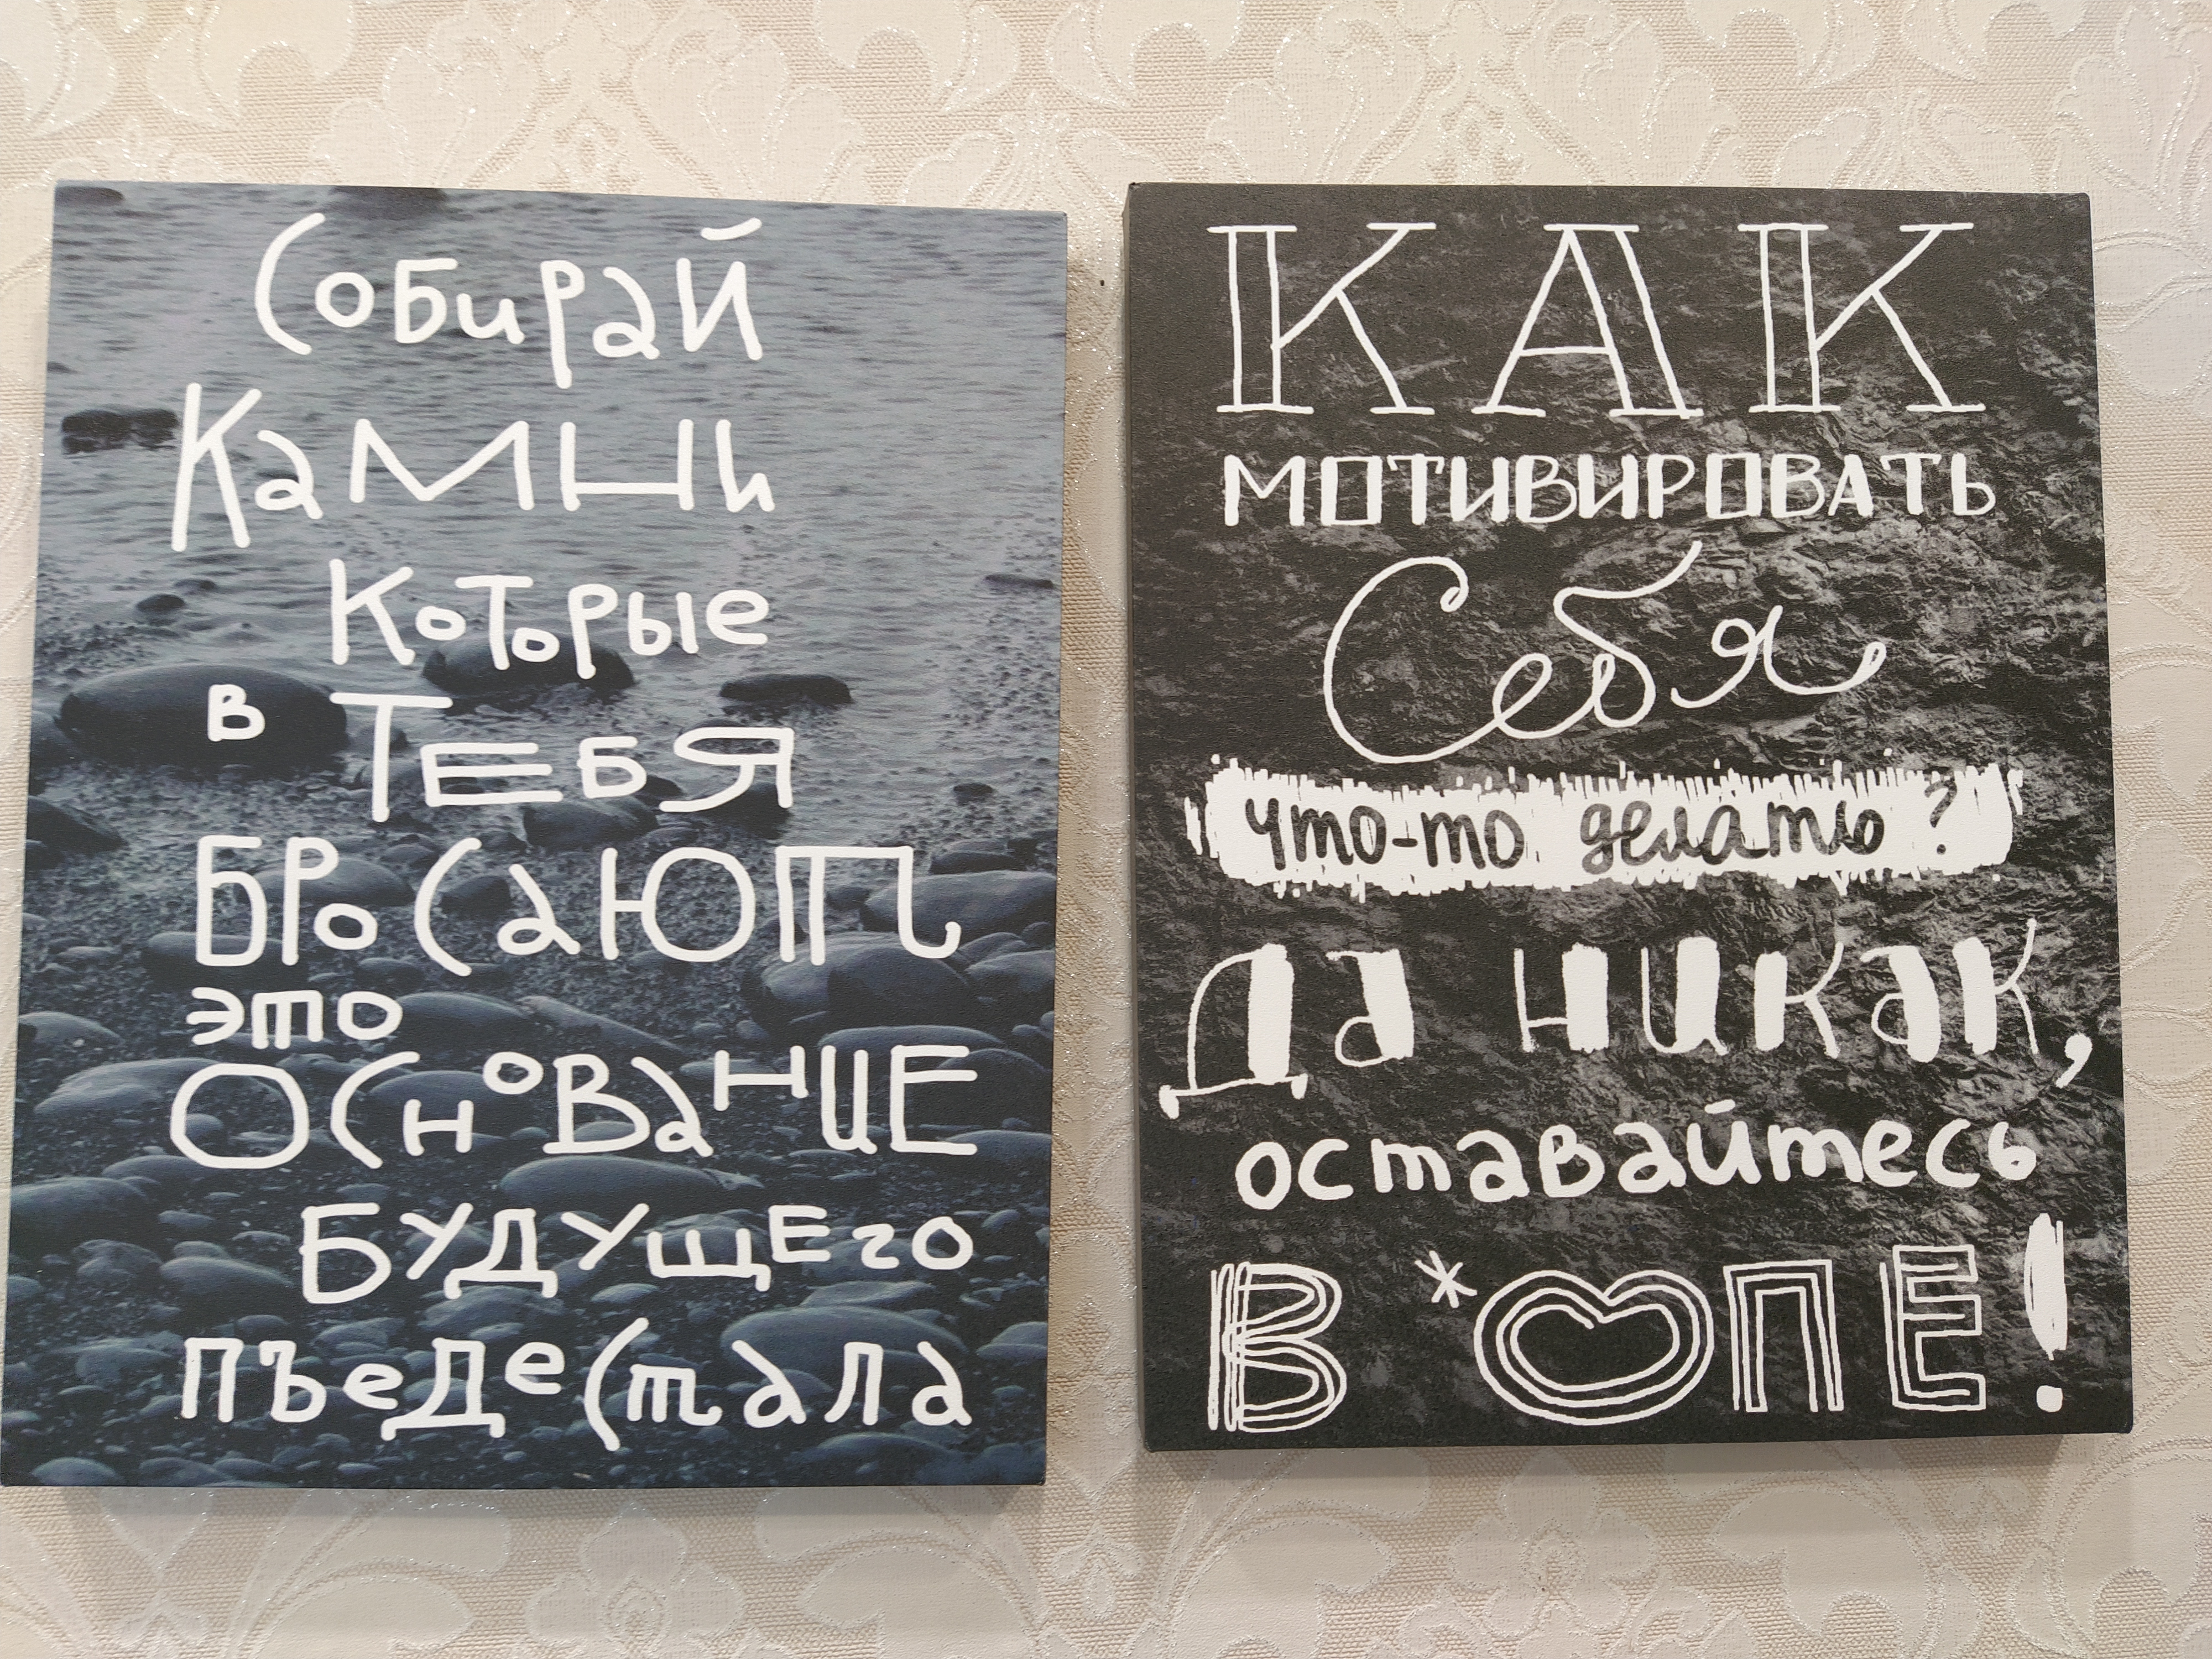 Собирай
Камни
Которые
в ТЕБЯ
БРоСаЮТ
это
ОСНоВаНИЕ
БУДУЩЕго
пъеДеСтала
КАК
МОТИВИРОВАТЬ
Себя
что-то делать?
Да никак,
оставайтесь
В *ОПЕ!